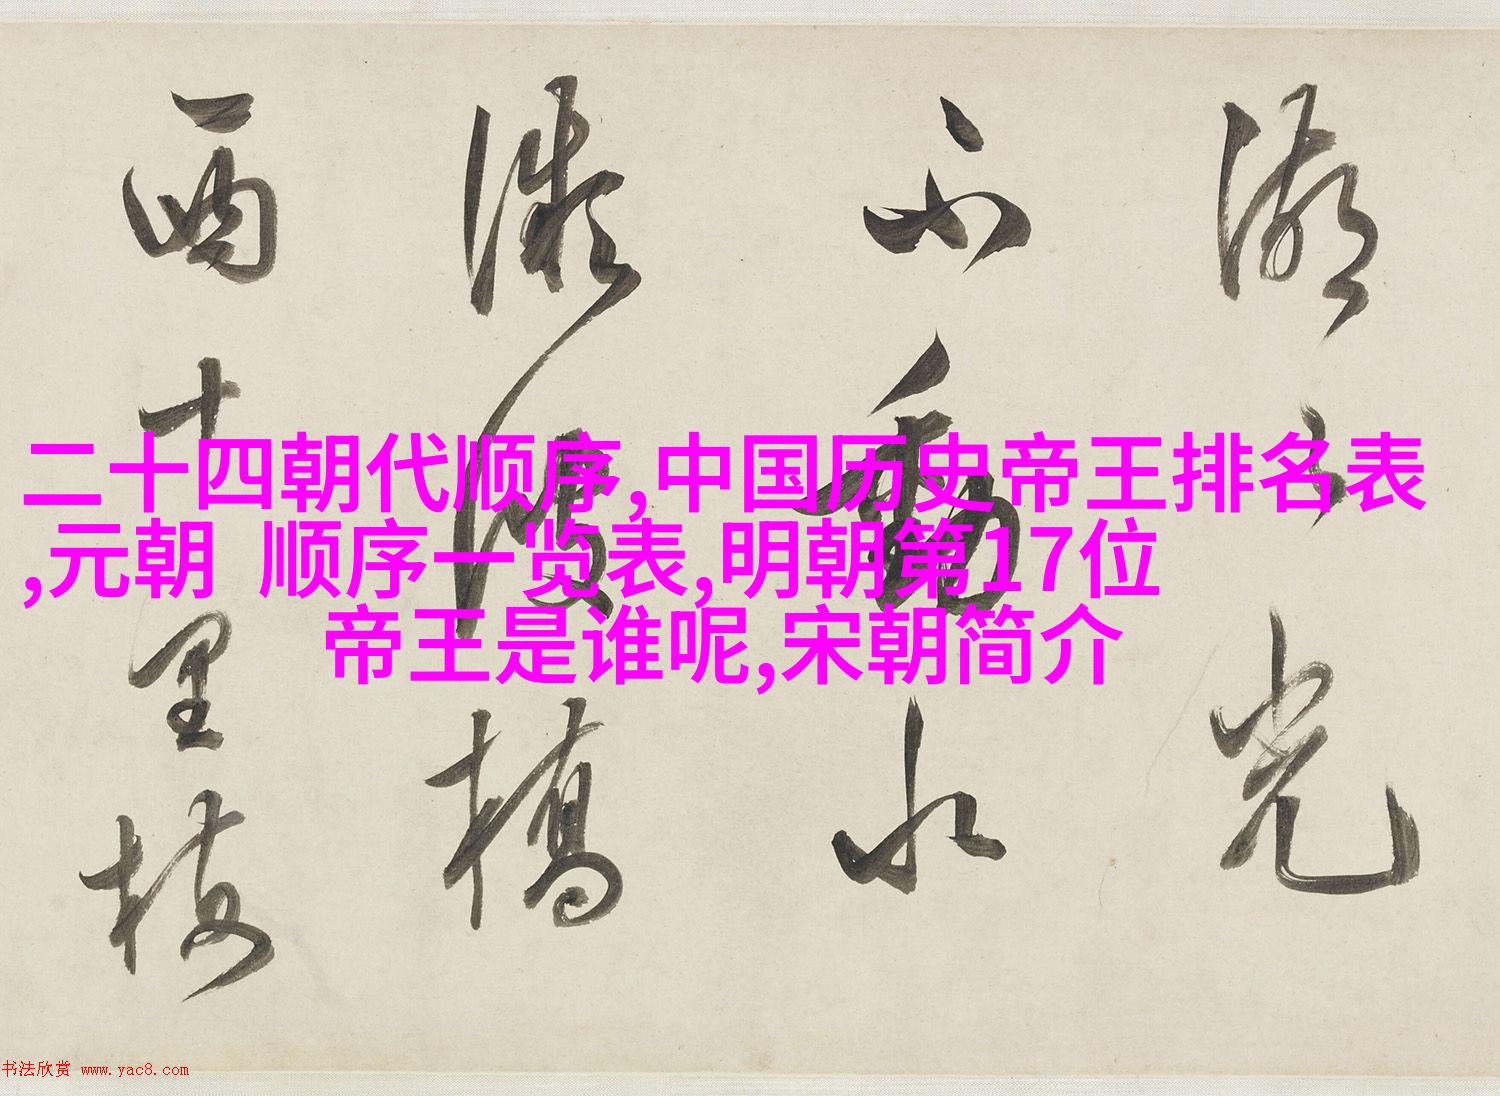 湖光
不動水
橋
西十里梅
二十四朝代顺序,中国历史帝王排名表
,元朝 顺序一览表,明朝第17位
帝王是谁呢,宋朝简介
书法欣赏 www.yac8.com